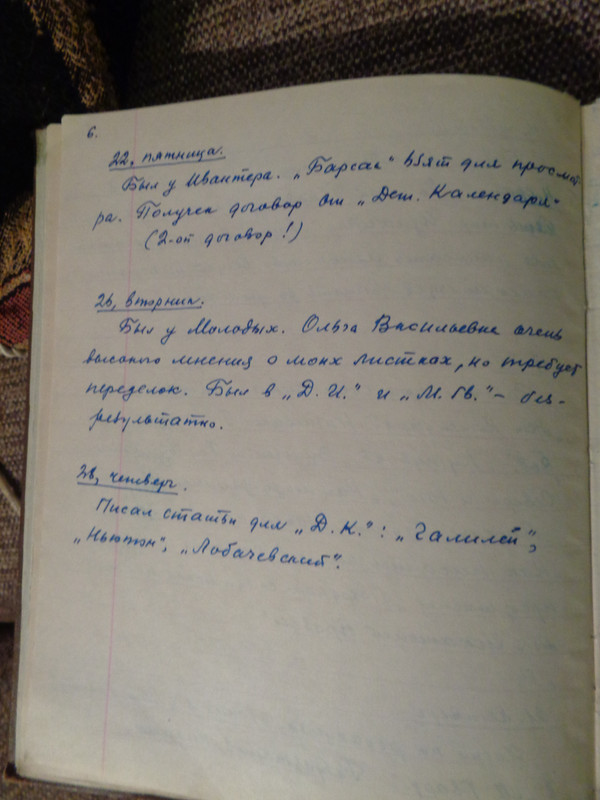 6.
22, пятница.
Был у Ивантера. „Барсак" взят для просмот-
ра. Получен договор от „Дет. Календаря"
(2-ой договор!)
26, вторник.
Был у Молодых. Ольга Васильевна очень
высокого мнения о моих листках, но требует
переделок. Был в „Д. И." и „М. Гв." – без-
результатно.
28, четверг.
Писал статьи для „Д. К.": „Галилей",
„Ньютон", „Лобачевский".